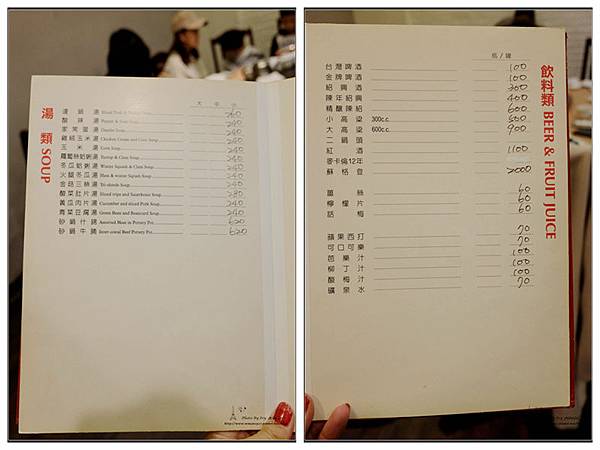 湯類 SOUP
大 中 小
湯 240
酸辣湯 240
家常蛋湯 240
雞絨玉米湯 Chicken Cream and Corn Soup 240
玉米湯 Corn Soup 240
蘿蔔絲蛤蜊湯 Turnip & Clam Soup 240
冬瓜蛤蜊湯 Winter Squash & Clam Soup 240
火腿冬瓜湯 Ham & winter Squash Soup 240
金菇三絲湯 240
酸菜肚片湯 280
黃瓜肉片湯 Cucumber and sliced Pork Soup 240
青菜豆腐湯 Green Bean and Beancurd Soup 240
砂鍋什錦 Assorted Meat in Pottery Pot 620
砂鍋牛腩 Beef Pottery Pot 620
飲料類 BEER & FRUIT JUICE
瓶/罐
台灣啤酒 100
金牌啤酒 100
紹興酒 300
陳年紹興 400
精釀陳紹 600
小高粱 300c.c. 500
大高粱 600c.c. 900
二鍋頭
紅酒 1100
麥卡倫12年
蘇格登 2000
薑絲 60
檸檬片 60
話梅 60
蘋果西打 70
可口可樂 70
芭樂汁 100
柳丁汁 100
酸梅汁 100
礦泉水 70